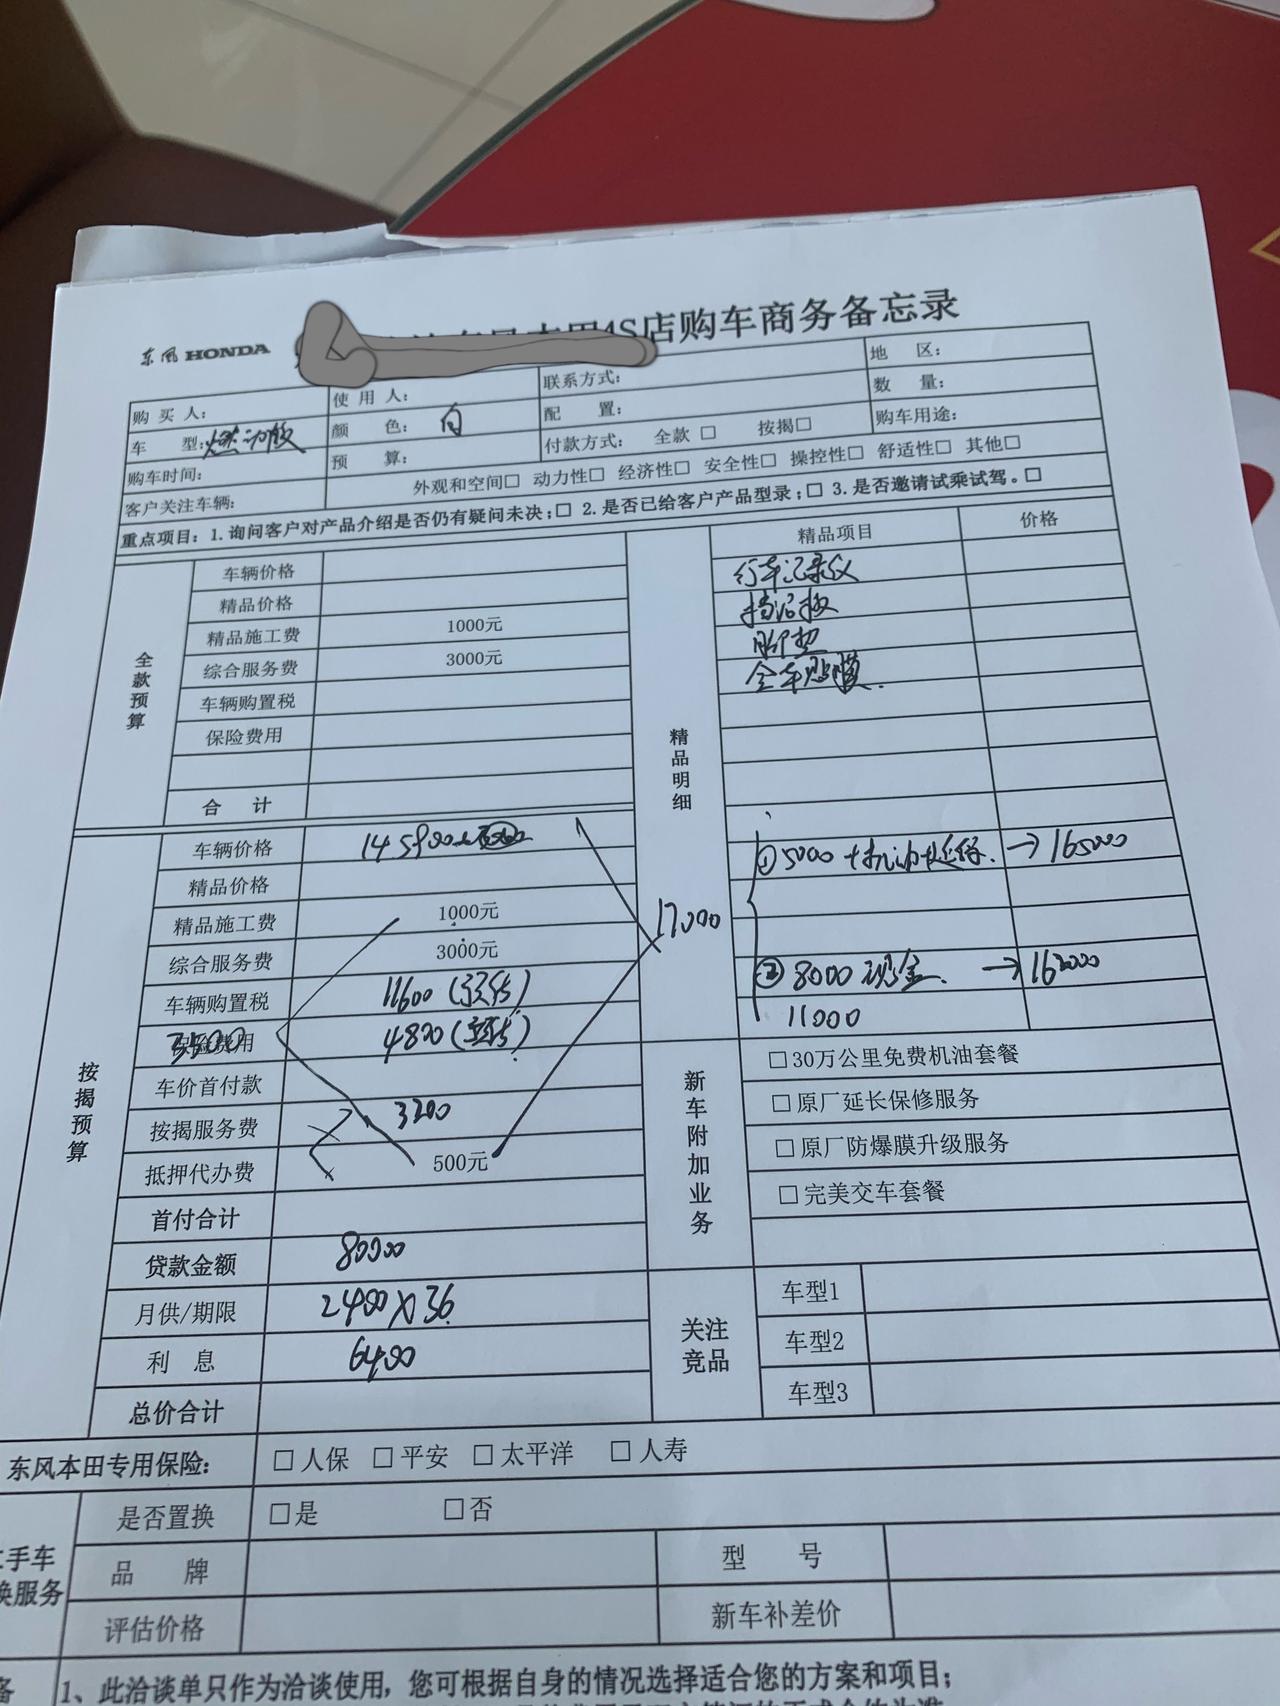 东风HONDA
4S店购车商务备忘录
购买人： 使用人： 联系方式： 地区：
车型：燃动版 颜色：白 配置： 数量：
购车时间： 预算： 付款方式： 全款□ 按揭□ 购车用途：
客户关注车辆： 外观和空间□ 动力性□ 经济性□ 安全性□ 操控性□ 舒适性□ 其他□
重点项目：1.询问客户对产品介绍是否仍有疑问未决；□ 2.是否已给客户产品型录；□ 3.是否邀请试乘试驾。□
全款预算
车辆价格
精品价格
精品施工费 1000元
综合服务费 3000元
车辆购置税
保险费用
合计
精品明细
精品项目 价格
行车记录仪
挡泥板
脚垫
全车贴膜.
①5000+机油+延保. →165000
17000
②8000现金. →162000
11000
按揭预算
车辆价格 145900
精品价格
精品施工费 1000元
综合服务费 3000元
车辆购置税 11600
保险费用 4800
3500
车价首付款
按揭服务费 3200
抵押代办费 500元
首付合计
贷款金额 80000
月供/期限 2400×36
利息 6400
总价合计
新车附加业务
□30万公里免费机油套餐
□原厂延长保修服务
□原厂防爆膜升级服务
□完美交车套餐
关注竞品
车型1
车型2
车型3
东风本田专用保险： □人保 □平安 □太平洋 □人寿
手车
换服务
是否置换 □是 □否
品牌 型号
评估价格 新车补差价
1、此洽谈单只作为洽谈使用，您可根据自身的情况选择适合您的方案和项目；